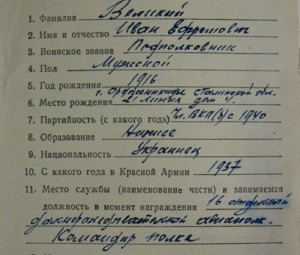 1. Фамилия Великий
2. Имя и отчество Иван Ефремович
3. Воинское звание Подполковник
4. Пол Мужской
5. Год рождения 1916
г. Орджоникидзе Сталинской обл.
6. Место рождения 21 линия дом 4.
7. Партийность (с какого года) Чл. ВКП(б) с 1940
8. Образование Низшее
9. Национальность Украинец
10. С какого года в Красной Армии 1937
11. Место службы (наименование части) и занимаемая
должность в момент награждения 16 отдельный
дальнеразведывательной авиаполк.
Командир полка